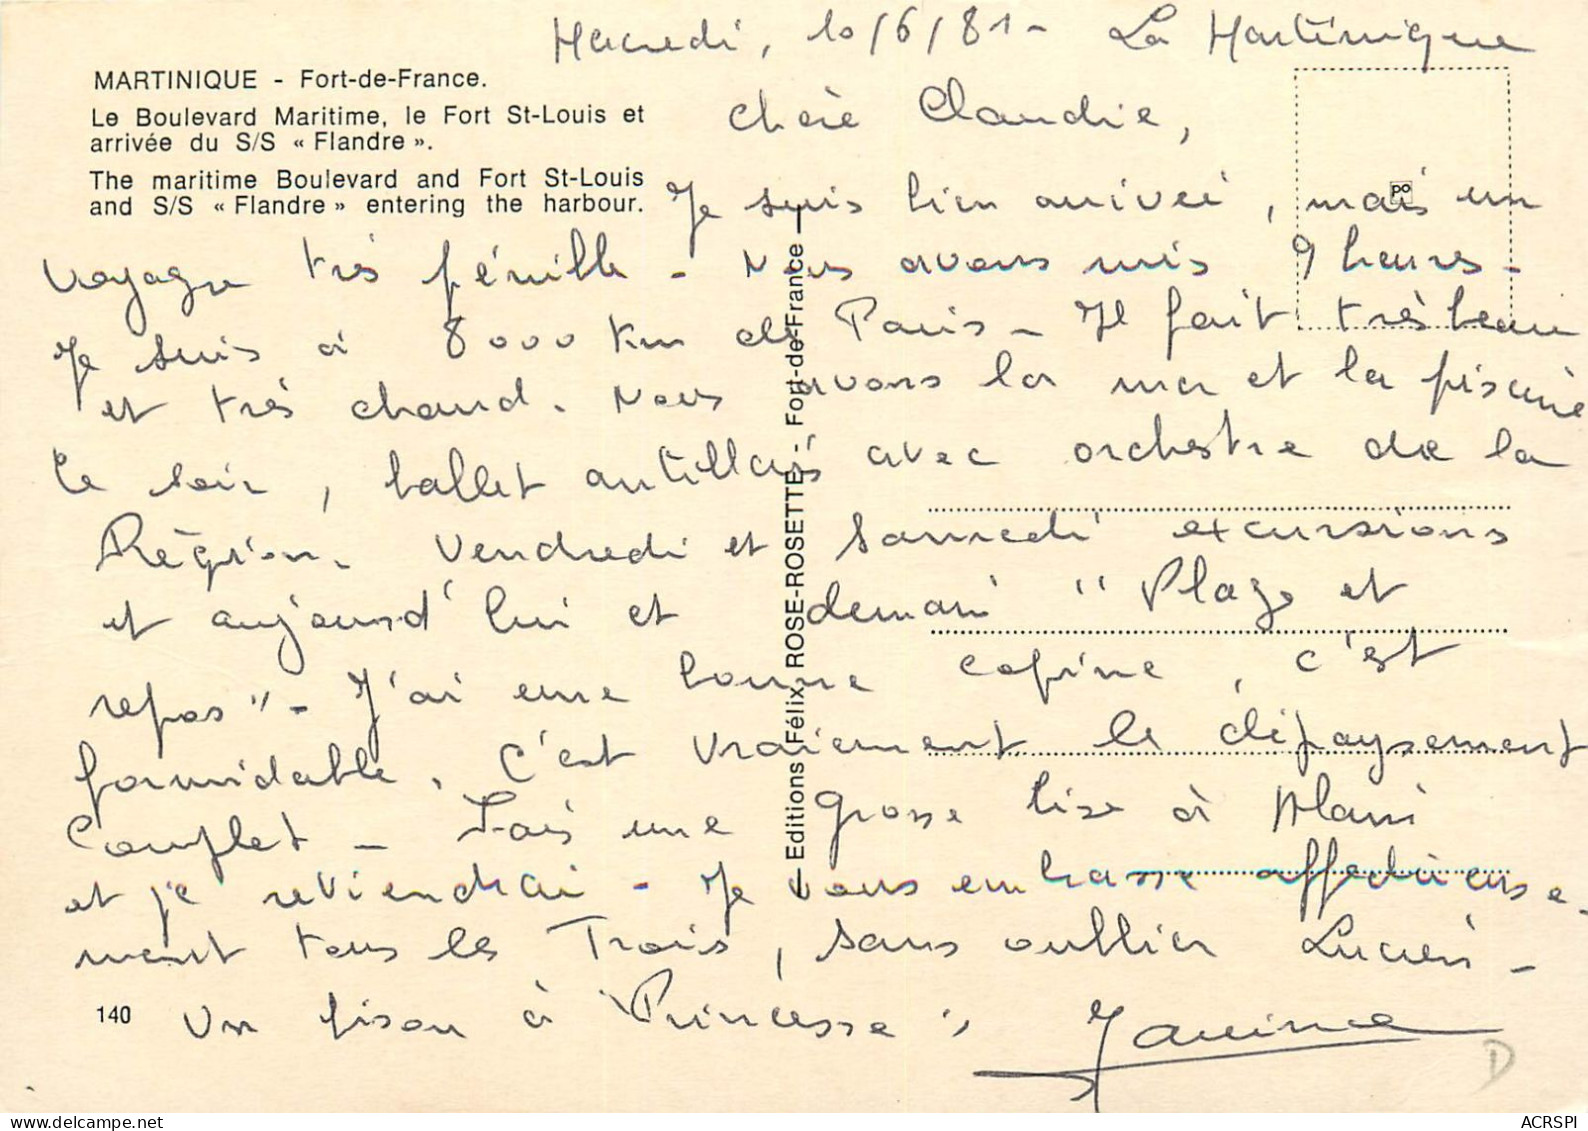 Mercredi, 10/6/81 - La Martinique
MARTINIQUE - Fort-de-France.
Le Boulevard Maritime, le Fort St-Louis et
arrivée du S/S « Flandre ».
The maritime Boulevard and Fort St-Louis
and S/S « Flandre » entering the harbour.
Chère Claudie,
Je suis bien arrivée, mais un
voyage très pénible - Nous avons mis 9 heures -
Je suis à 8000 Km de Paris - Il fait très beau
et très chaud. Nous avons la mer et la piscine
Le soir, ballet antillais avec orchestre de la
Région. Vendredi et Samedi excursions
et aujourd'hui et demain "Plage et
repos" - J'ai une bonne copine, c'est
formidable. C'est vraiement le dépaysement
Complet - Fais une grosse bise à Alain
et je reviendrai - Je vous embrasse affectueuse-
ment tous les Trois, sans oublier Lucien -
Un bisou à "Princesse"
140
Editions Félix ROSE-ROSETTE - Fort-de-France
po
D
ACRSPI